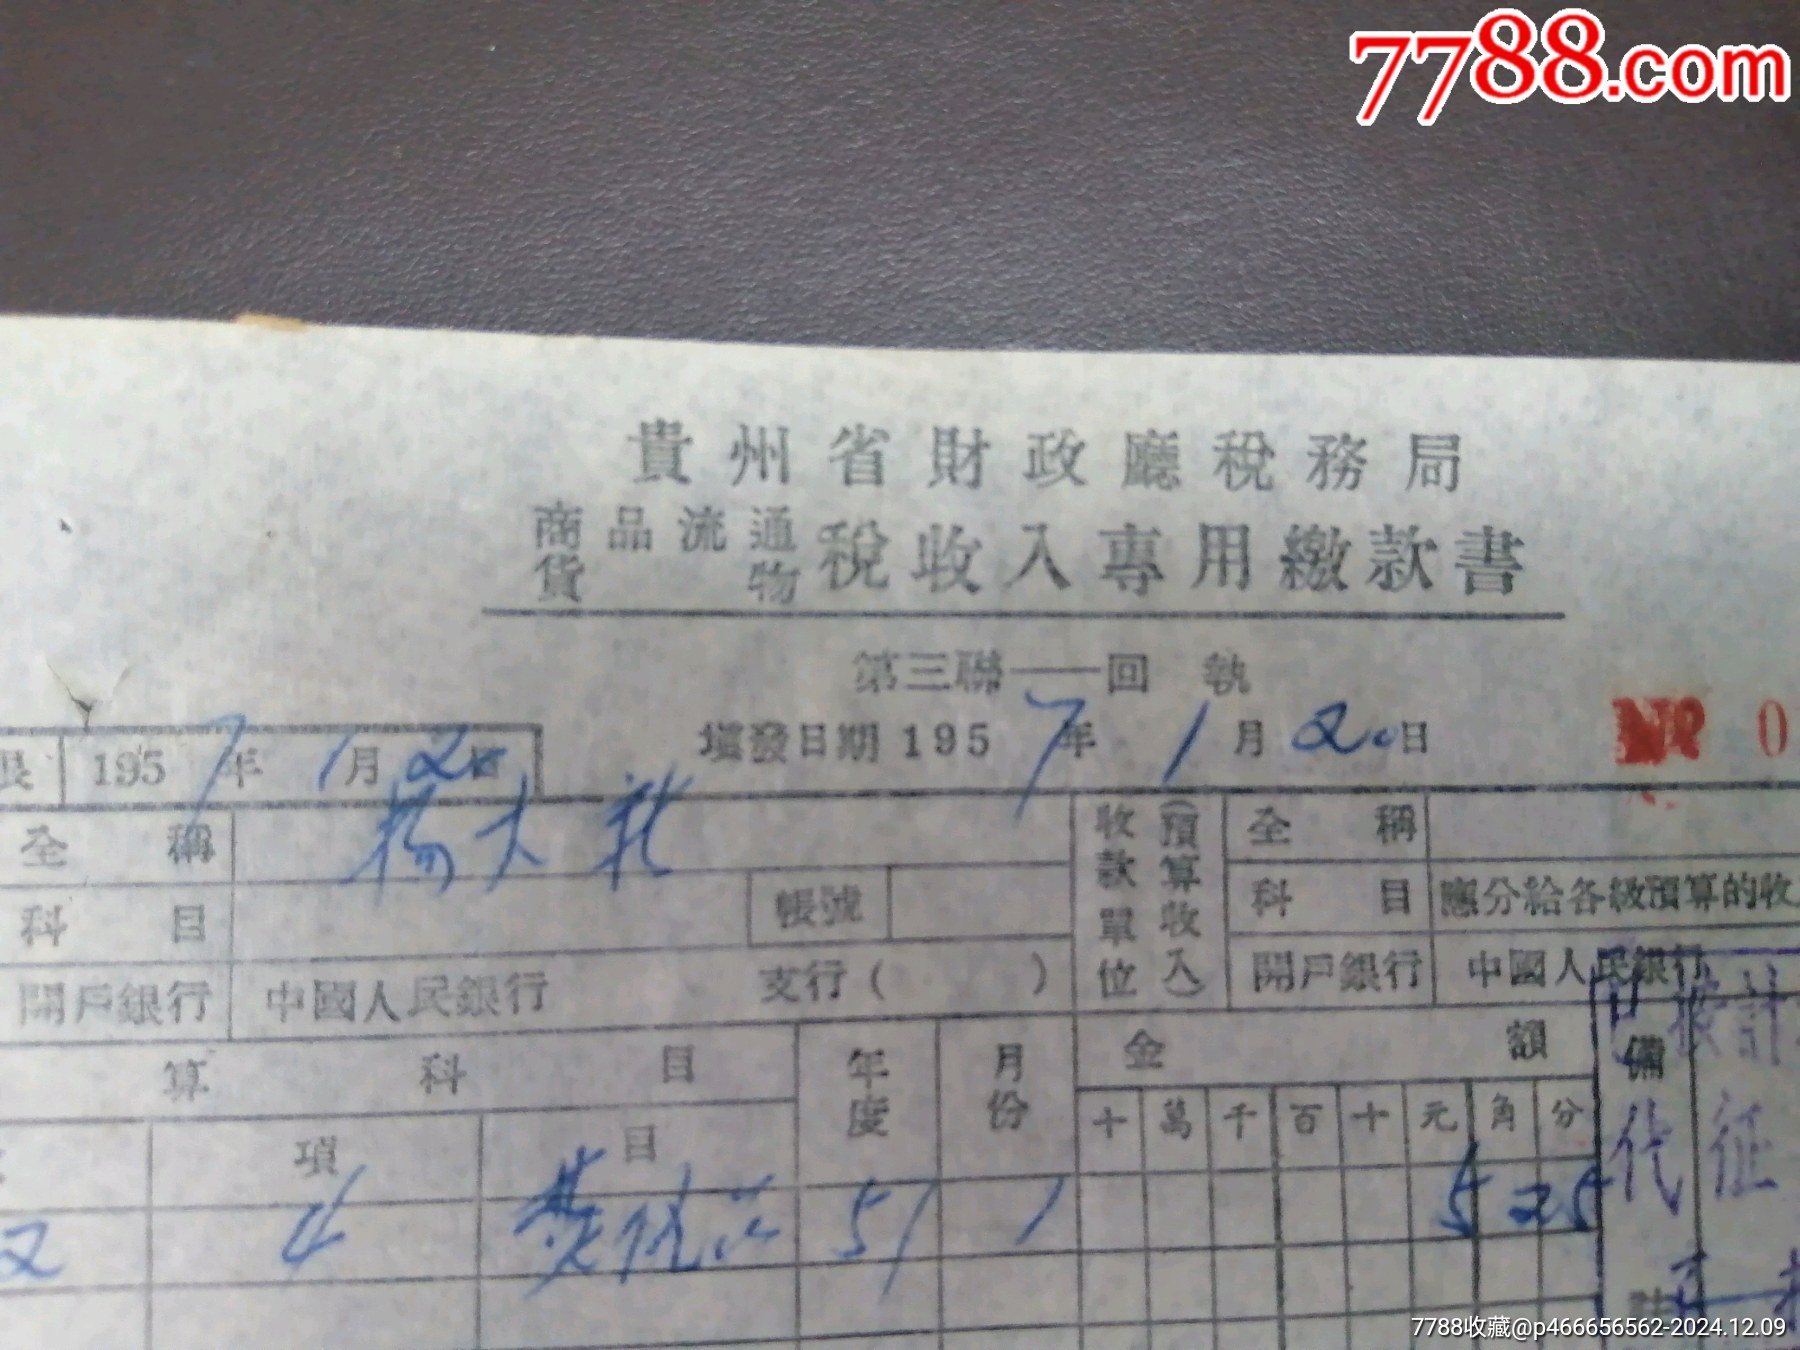 7788.com
貴州省財政廳稅務局
商品流通
貨物
稅收入專用繳款書
第三聯——回執
填發日期1957年1月20日
NO 0
1957年1月20日
全稱 楊大
收款單位
(預算收入)
全稱
科目
帳號
科目 應分給各級預算的收
開戶銀行 中國人民銀行 支行( )
開戶銀行 中國人民銀行
算科目
年度
月份
金額
備
項 目
十萬千百十元角分
4 57 1 5 25
代征
7788收藏@p466656562-2024.12.09